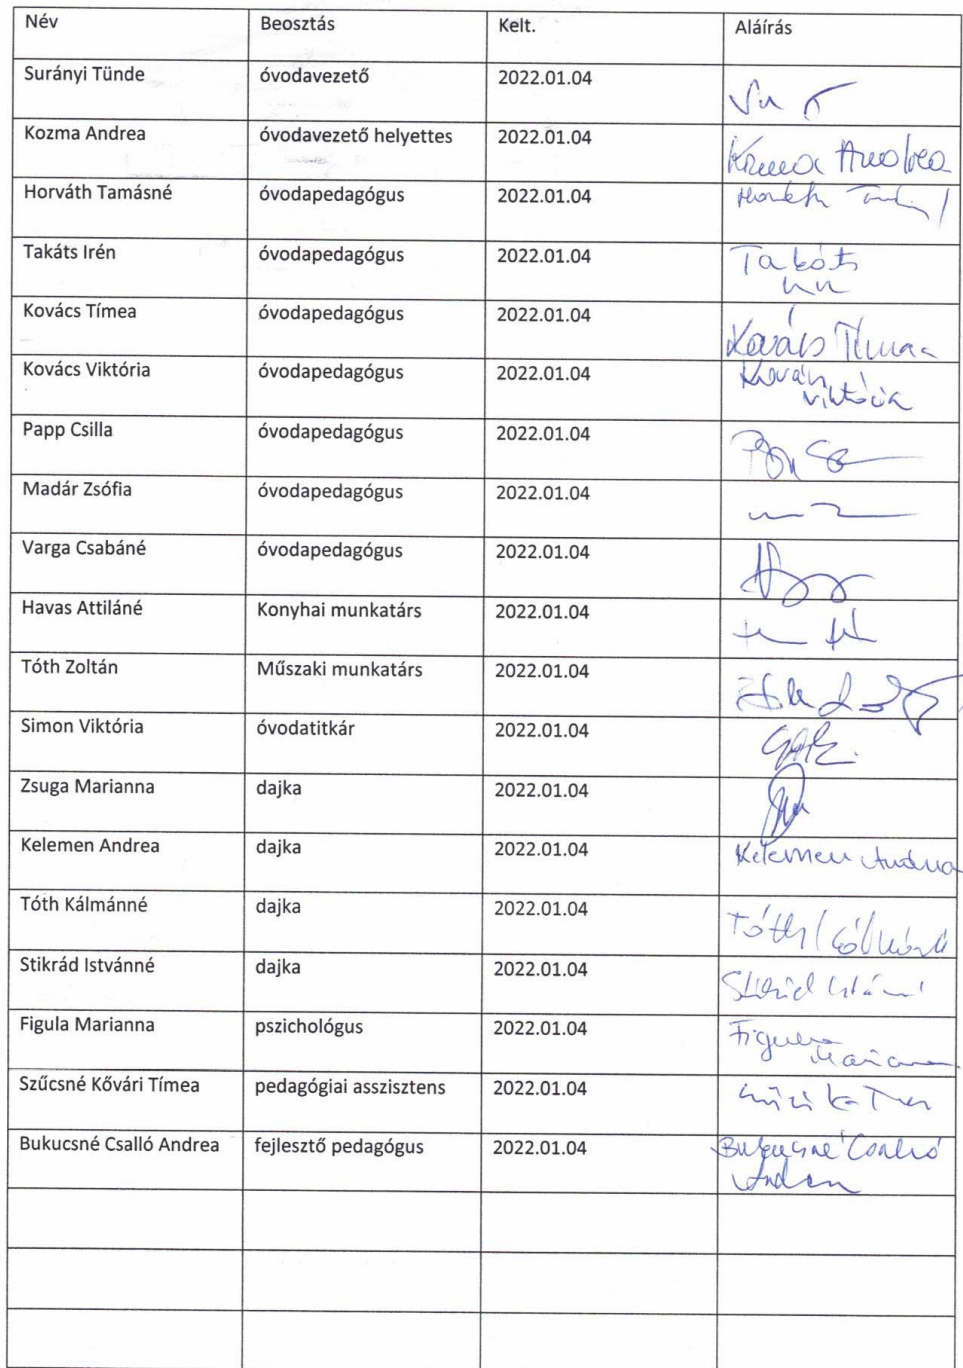 Név Beosztás Kelt. Aláírás
Surányi Tünde óvodavezető 2022.01.04
Kozma Andrea óvodavezető helyettes 2022.01.04 Kozma Andrea
Horváth Tamásné óvodapedagógus 2022.01.04 Horváth
Takáts Irén óvodapedagógus 2022.01.04 Takáts
Kovács Tímea óvodapedagógus 2022.01.04 Kovács Tímea
Kovács Viktória óvodapedagógus 2022.01.04 Kovács
Viktória
Papp Csilla óvodapedagógus 2022.01.04
Madár Zsófia óvodapedagógus 2022.01.04
Varga Csabáné óvodapedagógus 2022.01.04
Havas Attiláné Konyhai munkatárs 2022.01.04
Tóth Zoltán Műszaki munkatárs 2022.01.04
Simon Viktória óvodatitkár 2022.01.04
Zsuga Marianna dajka 2022.01.04
Kelemen Andrea dajka 2022.01.04 Kelemen Andrea
Tóth Kálmánné dajka 2022.01.04 Tóth Kálmánné
Stikrád Istvánné dajka 2022.01.04
Figula Marianna pszichológus 2022.01.04 Figula
Marianna
Szűcsné Kővári Tímea pedagógiai asszisztens 2022.01.04
Bukucsné Csalló Andrea fejlesztő pedagógus 2022.01.04 Bukucsné Csalló
Andrea